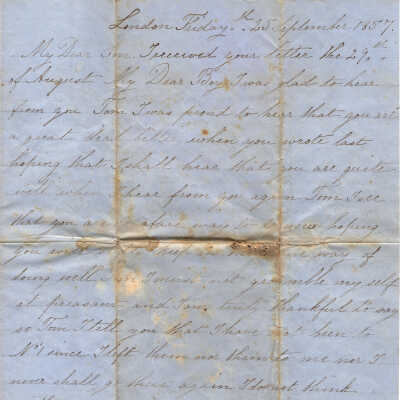 London Friday 25th September 1857.
My Dear Tom I received your letter the 29th
of August My Dear Boy I was glad to hear
from you Tom I was proud to hear that you are
a great deal better when you wrote last
hoping that I shall hear that you are quite
well when I hear from you again Tom I see
that you are in a fare way of now hoping
you will way of
doing well so I must not grumble my self
at preasant and I am truly thankful to say
so Tom I tell you that I have not been to
No 1 since I left them nor them to me nor I
never shall go there again I do not think